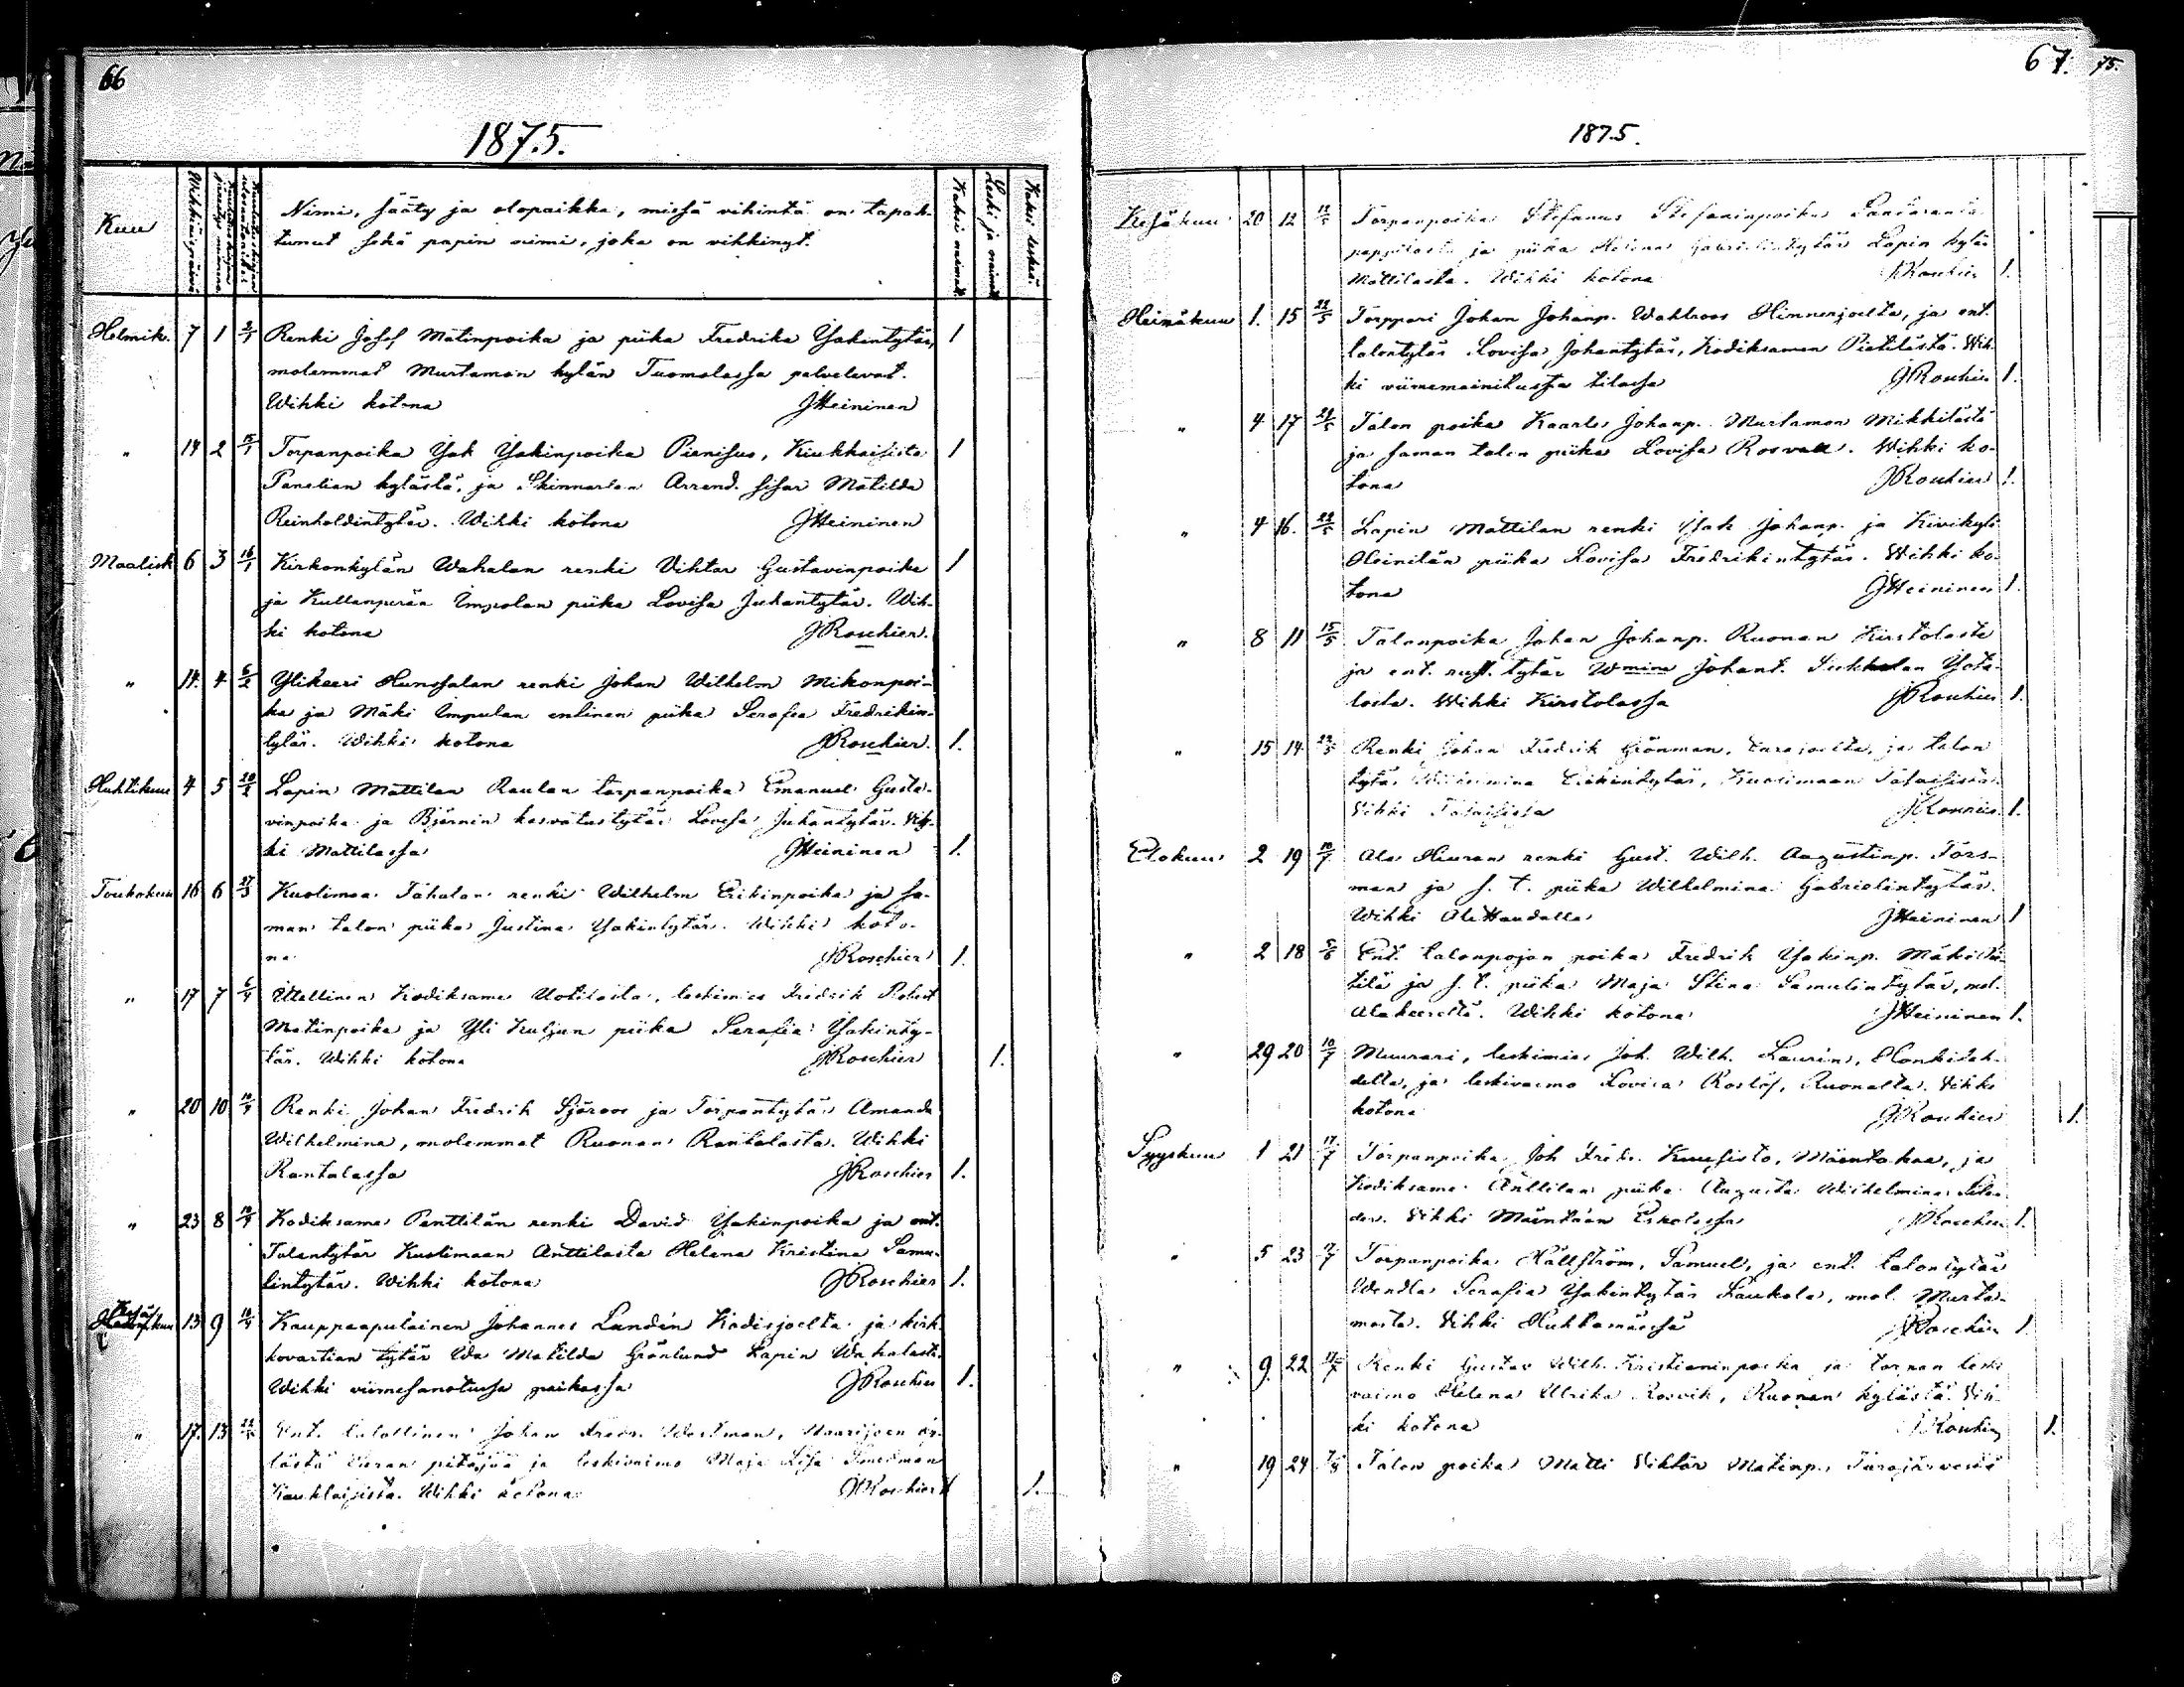 66
1875.
Kuu
Wihkiäispäivä
Nimi, sääty ja olopaikka, missä vihintä on tapah-
tunut sekä papin nimi, joka on vihkinyt.
Leski ja
Kaksi leskeä
Helmik. 7 1 Renki Josef Matinpoika ja piika Fredrika Ysakintytär, 1
molemmat Murtamon kylän Tuomolassa palvelevat.
Wihki kotona JHeininen
" 14 2 15/1 Torpanpoika Isak Isakinpoika Kiukkaisista 1
Panelian kylästä, ja Arrend. sisar Matilda
Reinholdintytär. Wihki kotona JHeininen
Maalisk 6 3 16/1 Kirkonkylän Wahalan renki Vihtor Gustavinpoika 1
ja Kullanperän Impolan piika Lovisa Juhantytär. Wih-
ki kotona JRoschier.
" 14. 4 6/2 Ylikeeri Hunssalan renki Johan Wilhelm Mikonpoi-
ka ja Mäki Impulan entinen piika Serafia Fredrikin-
tytär. Wihki kotona JRoschier. 1.
Huhtikuu 4 5 20/2 Lapin Mattilan Raulan torpanpoika Emanuel Gusta-
vinpoika ja Björnin kasvatustytär Lovisa Juhantytär. Wih-
ki Mattilassa JHeininen 1.
Toukokuu 16 6 27/3 Kuolimaa Tähalan renki Wilhelm Erikinpoika ja sa-
man talon piika Justina Isakintytär. Wihki koto-
na JRoschier 1.
" 17 7 Itsellinen Kodiksame Uotilasta, leskimies Fredrik Robert
Matinpoika ja Yli Kuljun piika Serafia Isakinty-
tär. Wihki kotona JRoschier 1.
" 20 10 Renki Johan Fredrik Sjöroos ja Torpantytär Amanda
Wilhelmina, molemmat Ruonan Rantalasta. Wihki
Rantalassa JRoschier 1.
" 23 8 Kodiksame Penttilän renki David Isakinpoika ja ent.
Talontytär Kuolimaan Anttilasta Helena Kristina Samu-
lintytär. Wihki kotona JRoschier 1.
Kesäkuu 13 9 Kauppaapulainen Johannes Lundén Kodisjoelta ja kirk
kovartian tytär Ida Matilda Grönlund Lapin Wahalasta
Wihki viimesanotussa paikassa JRoschier 1.
" 17. 13 Ent. talollinen Johan Fredr. Westman, ky-
lästä Euran pitäjää ja leskivaimo Maja Lisa
Kauklaisista. Wihki kotona JRoschier 1.
67. 75.
1875.
Kesäkuu 20 12 Torpanpoika Stefanus Stefaninpoika
ja piika Helena Gabrielintytär Lapin kylän
Mattilasta. Wihki kotona JRoschier 1.
Heinäkuu 1. 15 22/5 Torppari Johan Johanp. Wahlroos Hinnerjoelta, ja ent.
talontytär Lovisa Johantytär, Kodiksamen Pietilästä. Wih-
ki viimemainitussa tilassa JRoschier 1.
" 4 17 Talon poika Kaarlo Johanp. Murtamon Mikkilästä
ja saman talon piika Lovisa Rosvall. Wihki ko-
tona JRoschier 1.
" 4 16. Lapin Mattilan renki Isak Johanp. ja Kivikylä
Heinilän piika Lovisa Fredrikintytär. Wihki ko-
tona JHeininen 1.
" 8 11 15/5 Talonpoika Johan Johanp. Ruonan Kirstolasta
ja ent. rust. tytär Wmina Johant.
Wihki Kirstolassa JRoschier 1.
" 15 14 Renki Johan Fredrik Grönman, Eurajoelta, ja talon
tytär Wilhelmina Erikintytär, Kuolimaan
Wihki JRoschier 1.
Elokuu 2 19 10/7 Ala Hiuran renki Gust. Wilh. Augustinp. Fors-
man ja s. t. piika Wilhelmina Gabrielintytär.
Wihki JHeininen 1
" 2 18 Ent. talonpojan poika Fredrik Isakinp.
ja s. t. piika Maja Stina Samulintytär, mol.
Alakeereltä. Wihki kotona JHeininen 1.
" 29 20 10/7 Muurari, leskimies Joh. Wilh. Laurén, Honkilah-
delta, ja leskivaimo Lovisa Roslöf, Ruonalta. Wihki
kotona JRoschier 1.
Syyskuu 1 21 17/7 Torpanpoika Joh Fredr. Kuusisto, ja
Kodiksame Anttilan piika Augusta Wilhelmina
Wihki Eskolassa JRoschier 1.
" 5 23 Torpanpoika Hällström, Samuel, ja ent. talontytär
Wendla Serafia Isakintytär Laukola, mol. Murta-
mosta. Wihki JRoschier 1.
" 9. 22 17/7 Renki Gustav Wilh. Kristianinpoika ja torpan leski
vaimo Helena Ulrika Rosvik, Ruonan kylästä. Wih-
ki kotona JRoschier 1.
" 19 24 Talon poika Matti Viktor Matinp.